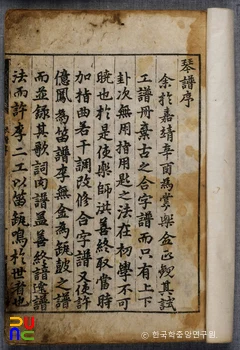 琴譜序
余於嘉靖辛酉爲掌樂僉正觀其試
工譜冊棄古之合字譜而只有上下
卦次無用指用匙之法在初學不可
曉也於是使樂師洪善終取當時
加指曲若干調改修合字譜又使許
億鳳爲笛譜李無金爲鼓之譜
而並錄其歌詞肉譜蓋善終諳達譜
法而許李二工以笛鼓鳴於世者也
© 한국학중앙연구원